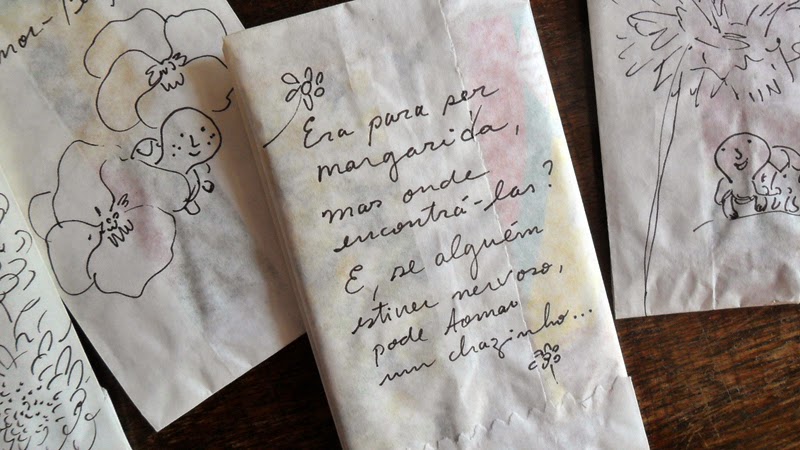 Era para ser
margarida,
mas onde
encontrá-las?
E, se alguém
estiver nervoso,
pode tomar
um chazinho...